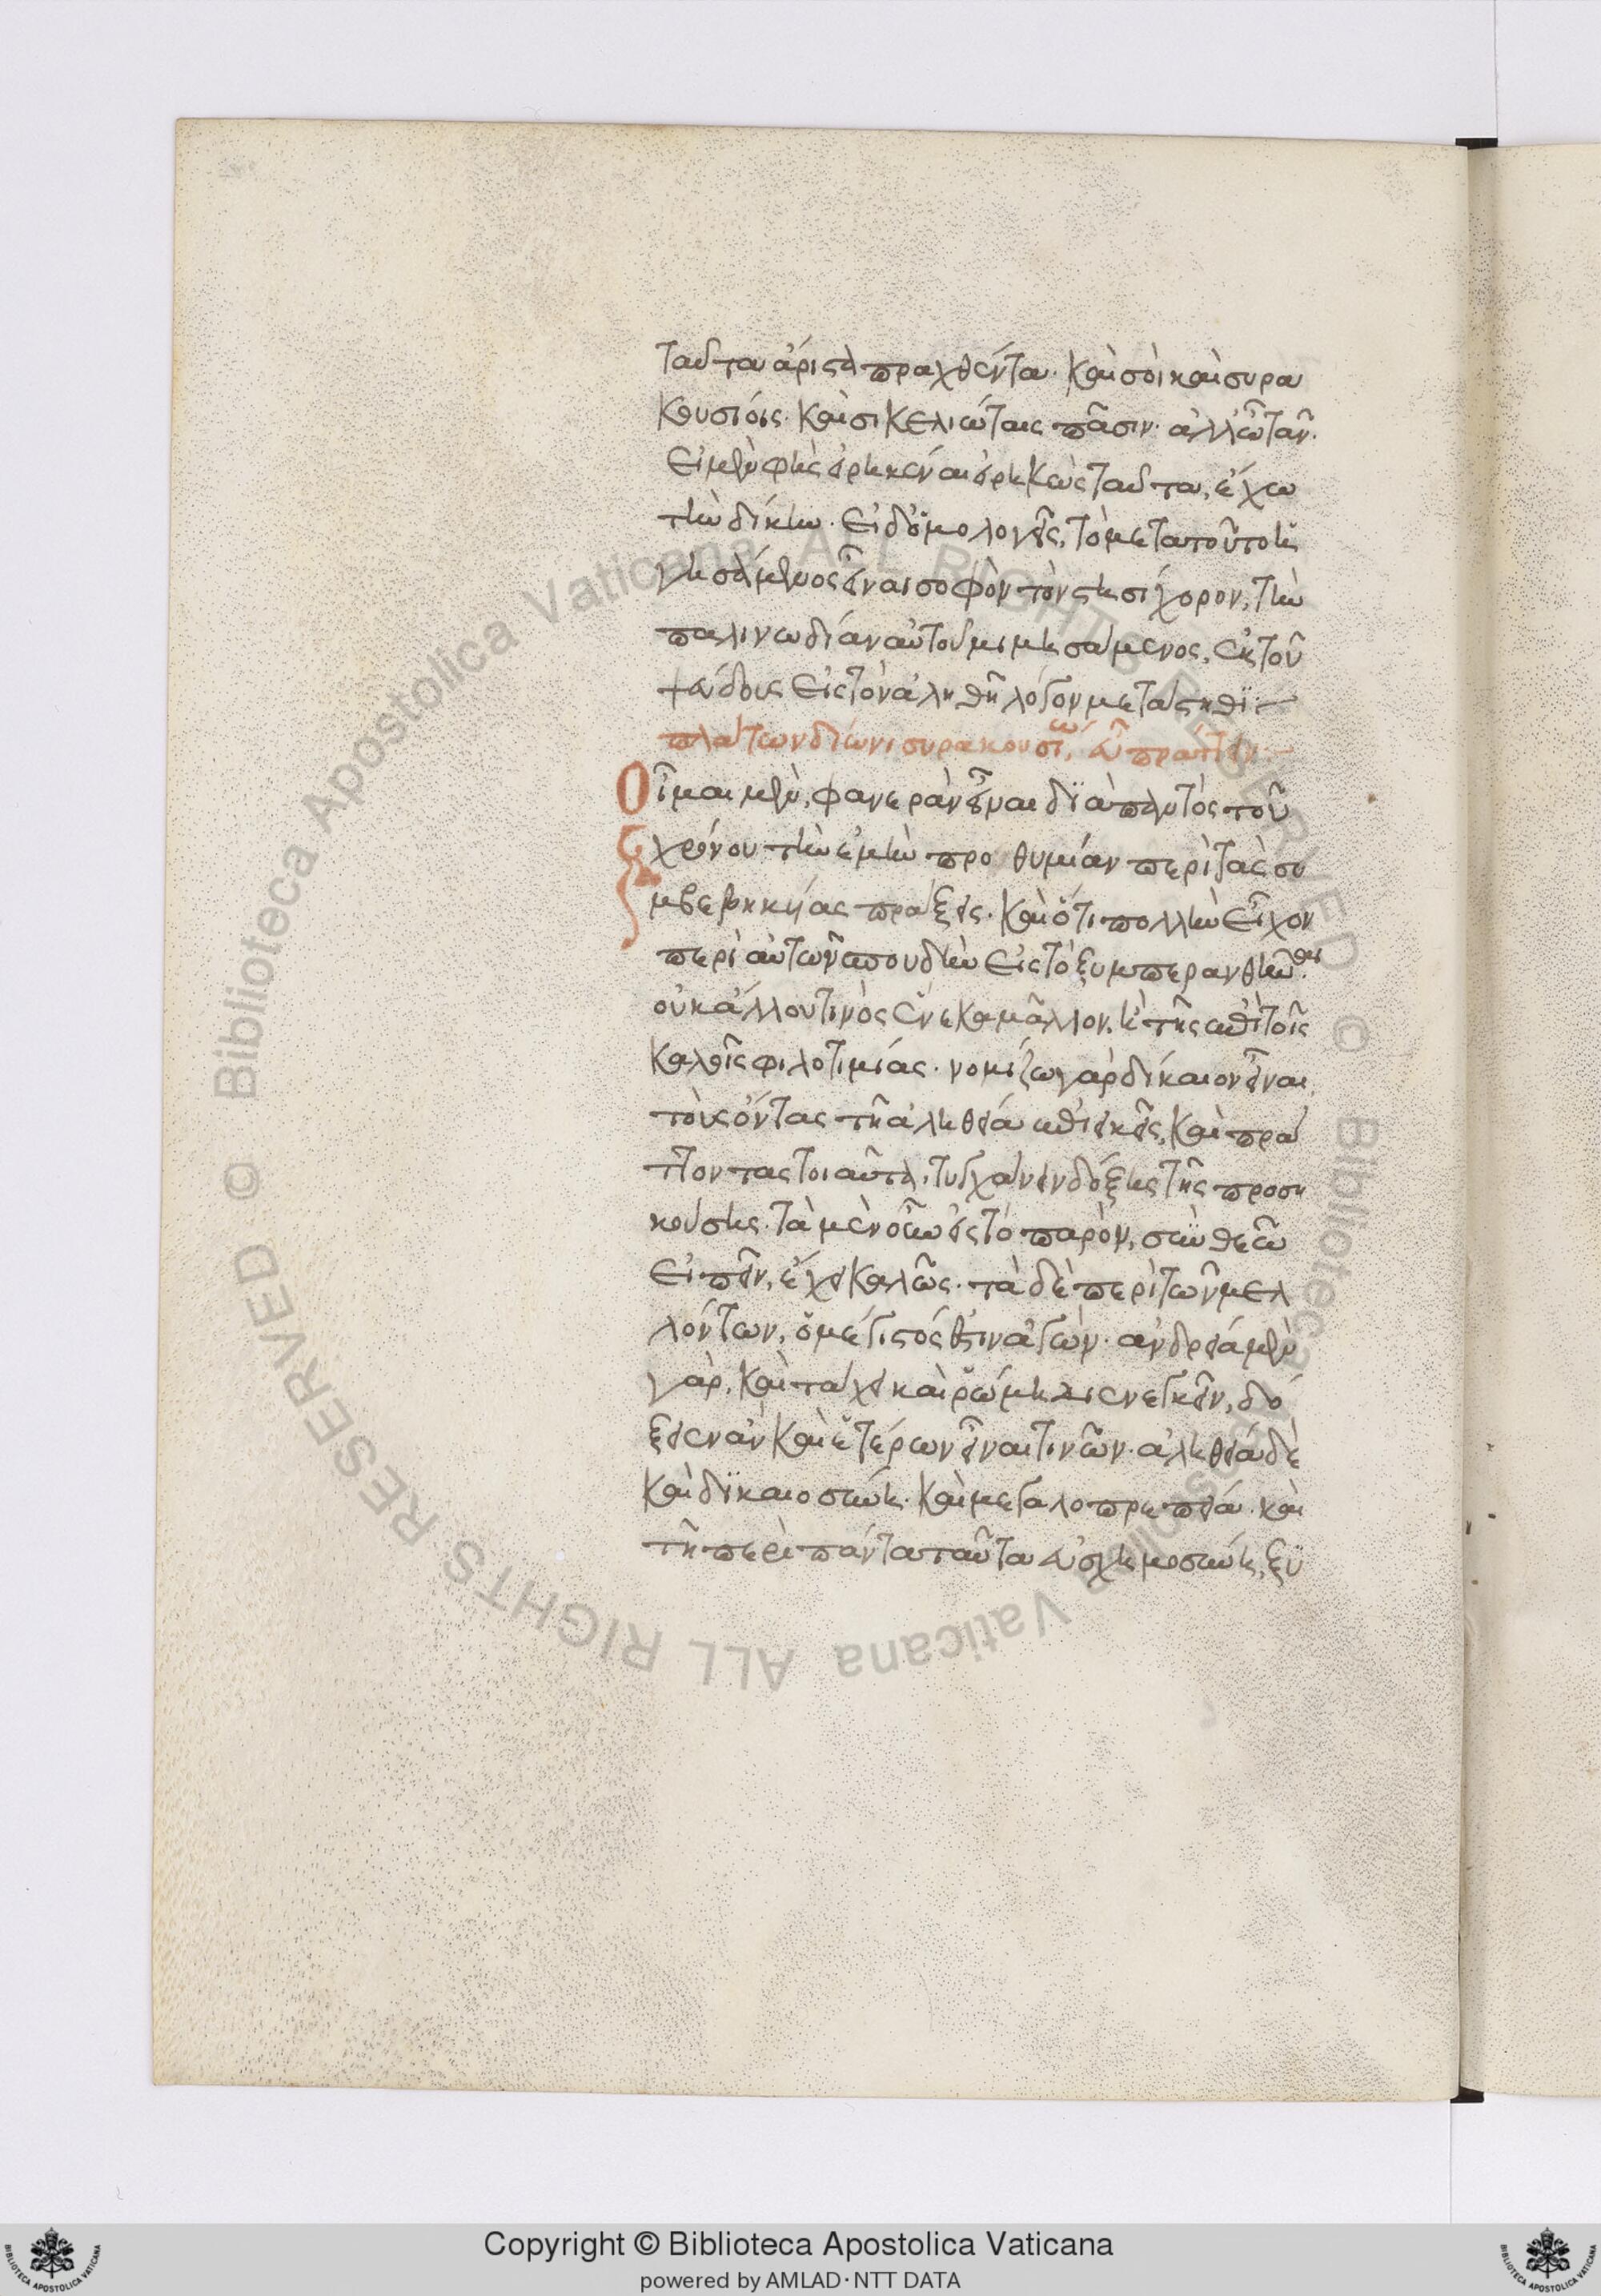 ταῦτα ἄριστα πραχθέντα· καὶ σοὶ καὶ συρα
κουσίοις· καὶ σικελιώταις πᾶσιν· ἀλλ' ὦ τᾶν·
εἰ μὲν φὴς εἰρηκέναι εἰρηκὼς ταῦτα, ἔχω
τὴν δίκην· εἰ δ' ὁμολογεῖς, τὸ μετὰ τοῦτο ἡ
γησάμενος εἶναι σοφὸν τὸν στησίχορον, τὴν
παλινωδίαν αὐτοῦ μιμησάμενος, ἐκ τοῦ
ψεύδους εἰς τὸν ἀληθῆ λόγον μεταστήθι:
πλάτων δίωνι συρακουσίω, εὖ πράττειν:
Οἶμαι μὲν, φανερὰν εἶναι διὰ παντὸς τοῦ
χρόνου τὴν ἐμὴν προθυμίαν περὶ τὰς συ
μβεβηκυίας πράξεις· καὶ ὅτι πολλὴν εἶχον
περὶ αὐτῶν σπουδὴν εἰς τὸ ξυμπερανθῆναι·
οὐκ ἄλλου τινὸς ἕνεκα μᾶλλον, ἢ τῆς ἐπὶ τοῖς
καλοῖς φιλοτιμίας· νομίζω γὰρ δίκαιον εἶναι,
τοὺς ὄντας τῇ ἀληθεία ἐπιεικεῖς, καὶ πρά
ττοντας τοιαῦτα, τυγχάνειν δόξης τῆς προση
κούσης· τὰ μὲν οὖν εἰς τὸ παρὸν, σὺν θεῶ
εἰπεῖν, ἔχει καλῶς· τὰ δὲ περὶ τῶν μελ
λόντων, ὁ μέγιστός ἐστιν ἀγών· ἀνδρεία μὲν
γὰρ, καὶ τάχει καὶ ῥώμη διενεγκεῖν, δό
ξειεν ἂν καὶ ἑτέρων εἶναι τινῶν· ἀληθεία δὲ
καὶ δικαιοσύνη· καὶ μεγαλοπρεπεία· καὶ
τῇ περὶ πάντα ταῦτα εὐσχημοσύνη, ξυ
Copyright © Biblioteca Apostolica Vaticana
powered by AMLAD · NTT DATA
© Biblioteca Apostolica Vaticana ALL RIGHTS RESERVED © Biblioteca Apostolica Vaticana ALL RIGHTS RESERVED